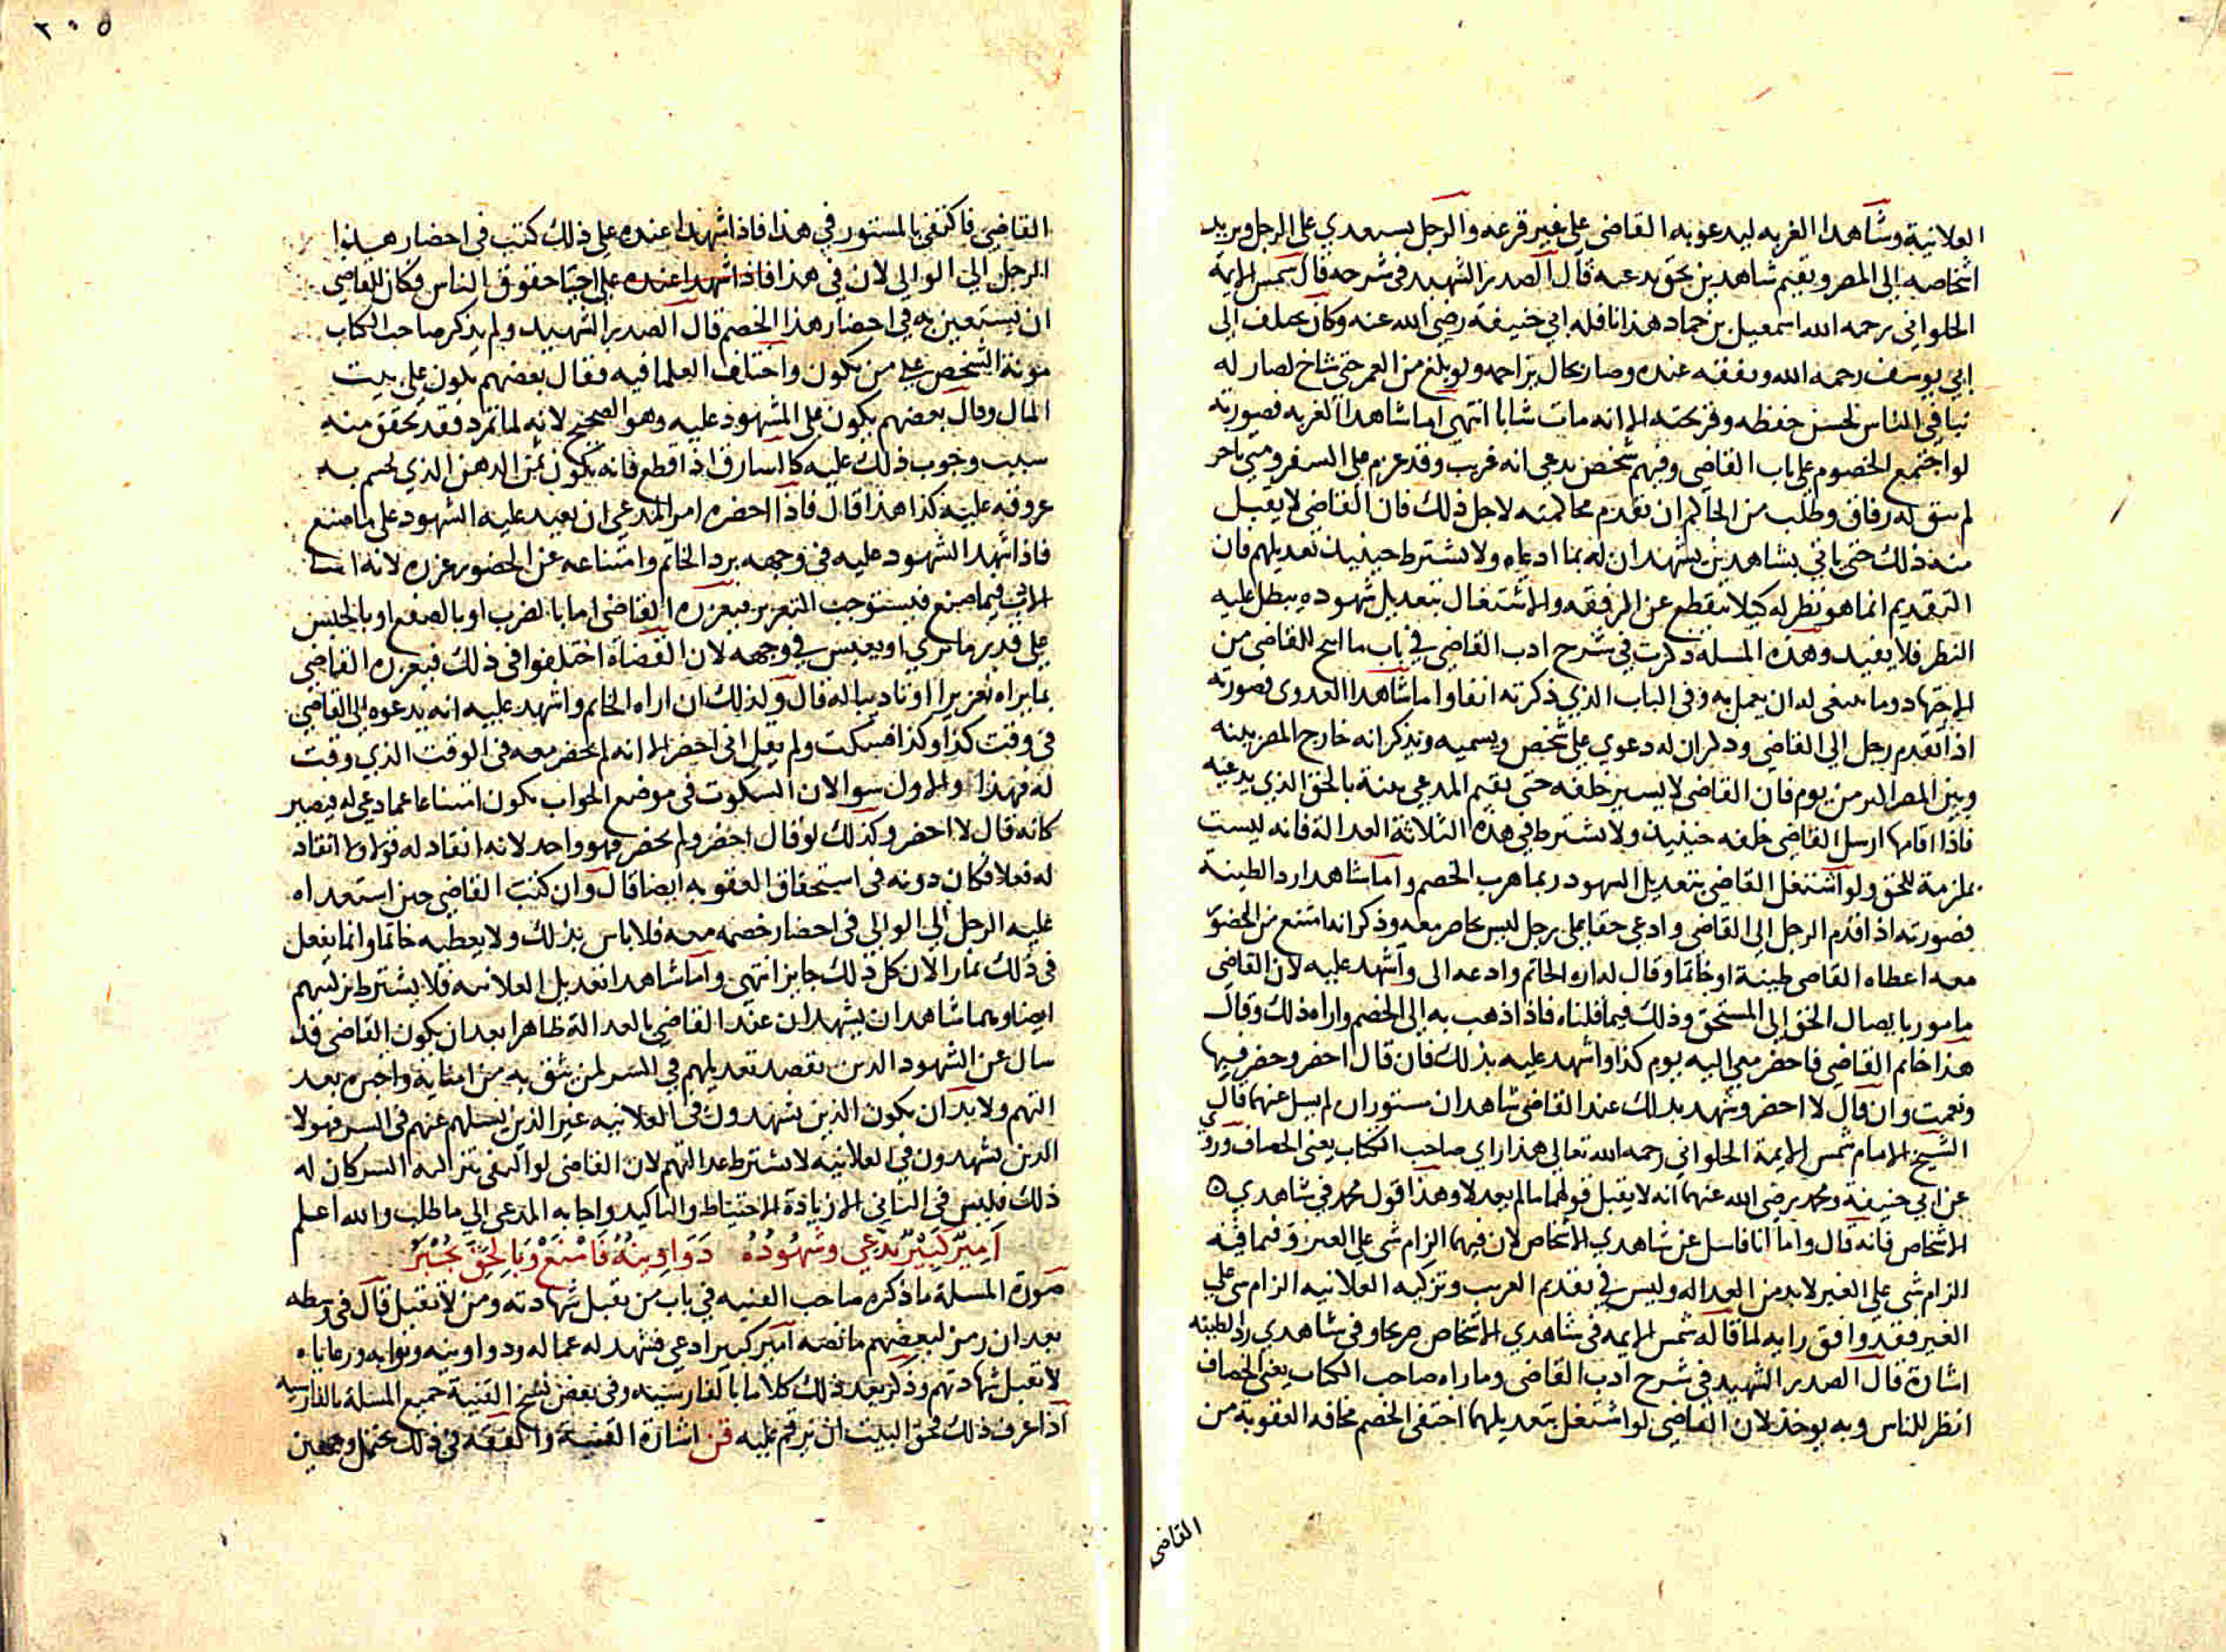 العلانية وشاهدا الغربه ليدعوبه القاضى على غير قرعه والرجل يستعدي على الرجل ويريد
اشخاصه الى المصر ويقيم شاهدين بحق يدعيه قال الصدر الشهيد فى شرحه قال شمس الايمة
الحلواني رحمه الله اسمعيل بن حماد هذا نافلة ابي حنيفة رضى الله عنه وكان يختلف الى
ابي يوسف رحمه الله ويتفقه عنده وصار بحال يزاحمه ولو بلغ من العمر حتى شاخ لصار له
نبا في الناس لحسن حفظه وقريحته الا انه مات شابا انتهى اما شاهدا الغربه فصورته
لو اجتمع الخصوم على باب القاضى وفيهم شخص يدعى انه غريب وقد عزم على السفر ومتى تاخر
لم تبق له رفاق وطلب من الحاكم ان تقدم محاكمته لاجل ذلك فان القاضى لا يقبل
منه ذلك حتى ياتي بشاهدين يشهدان له بما ادعاه ولا يشترط حينيذ تعديلهم فان
التقديم انما هو نظر له كيلا ينقطع عن الرفقه والاشتغال بتعديل شهوده يبطل عليه
النظر فلا يفيد وهذه المسلة ذكرت في شرح ادب القاضى في باب ما ابيح للقاضى من
الاجتهاد وما ينبغى له ان يعمل به وفى الباب الذي ذكرته انفا واما شاهدا العدوى فصورته
اذا تقدم رجل الى القاضى وذكر ان له دعوي على شخص ويسميه ويذكر انه خارج المصر بينه
وبين المصر اكثر من يوم فان القاضى لا يسير خلفه حتى يقيم المدعى بينة بالحق الذي يدعيه
فاذا اقامها ارسل القاضى خلفه حينيذ ولا يشترط في هذه الثلاثة العدالة فانه ليست
بملزمة للحق ولو اشتغل القاضى بتعديل الشهود ربما هرب الخصم واما شاهدا رد الطينة
فصورته اذا قدم الرجل الى القاضى وادعى حقا على رجل ليس بحاضر معه وذكر انه امتنع من الحضور
معه اعطاه القاضى طينة او خاتما وقال له اره الخاتم وادعه الى واشهد عليه لان القاضى
مامور بايصال الحق الى المستحق وذلك فيما قلناه فاذا ذهب به الى الخصم واراه ذلك وقال
هذا خاتم القاضى فاحضر معى اليه يوم كذا واشهد عليه بذلك فان قال احضر وحضر فبها
ونعمت وان قال لا احضر وشهد بذلك عند القاضى شاهدان مستوران لم يسل عنهما قال
الشيخ الامام شمس الايمة الحلواني رحمه الله تعالى هذا راي صاحب الكتاب يعنى الخصاف وروي
عن ابي حنيفة ومحمد رضى الله عنهما انه لا يقبل قولهما ما لم يعدلا وهذا قول محمد في شاهدي
الاشخاص فانه قال واما انا فاسل عن شاهدي الاشخاص لان فيهما الزام شى على الغير وفيما فيه
الزام شى على الغير لابد من العداله وليس في تقديم الغريب وتزكيه العلانيه الزام شى على
الغير فقد وافق رايه لما قاله شمس الايمه فى شاهدي الاشخاص صريحا وفى شاهدي رد الطينه
اشارة قال الصدر الشهيد في شرح ادب القاضى وما راه صاحب الكتاب يعنى الخصاف
انظر للناس وبه يوخذ لان القاضى لو اشتغل بتعديلهما اختفى الخصم مخافه العقوبة من
القاضى
٣٠٥
القاضي فاكتفى بالمستور في هذا فاذا شهدا عنده على ذلك كتب فى احضار هذا
الرجل الى الوالي لان في هذا فاذا شهدا عنده على احيا حقوق الناس فكان للقاضى
ان يستعين به في احضار هذا الخصم قال الصدر الشهيد ولم يذكر صاحب الكتاب
مونة الشخص على من يكون واختلف العلما فيه فقال بعضهم يكون على بيت
المال وقال بعضهم يكون على المشهود عليه وهو الصحيح لانه لما تمرد فقد تحقق منه
سبب وجوب ذلك عليه كالسارق اذا قطع فانه يكون ثمن الدهن الذي تحسم به
عروقه عليه كذا هذا قال فاذا احضره امر المدعى ان يعيد عليه الشهود على ما صنع
فاذا شهد الشهود عليه فى وجهه برد الخاتم وامتناعه عن الحضور عزره لانه اسا
الادب فيما صنع فيستوجب التعزير فيعزره القاضى اما بالضرب او بالصفع او بالحبس
على قدر ما يري او يعبس في وجهه لان القضاة اختلفوا فى ذلك فيعزره القاضى
بما يراه تعزيرا او تاديبا له قال وكذلك ان اراه الخاتم واشهد عليه انه يدعوه الى القاضى
فى وقت كذا وكذا فسكت ولم يقل انى احضر الا انه لم يحضر معه فى الوقت الذي وقت
له فهذا والاول سوا لان السكوت فى موضع الجواب يكون امتناعا عما دعى له فيصير
كانه قال لا احضر وكذلك لو قال احضر ولم يحضر فهو واحد لانه انقاد له قولا وما انقاد
له فعلا فكان دونه فى استحقاق العقوبه ايضا قال وان كتب القاضى حين استعداه
عليه الرجل الى الوالى فى احضار خصمه معه فلا باس بذلك ولا يعطيه خاتما وانما يفعل
فى ذلك بما را لان كل ذلك جايز انتهى واما شاهدا تعديل العلانيه فلا يشترط تزكيتهم
ايضا وهما شاهدان يشهدان عند القاضى بالعدالة ظاهرا بعد ان يكون القاضى قد
سال عن الشهود الذين يقصد تعديلهم في السر لمن يثق به من امنايه واخبره بعد
التهم ولابد ان يكون الذين يشهدون فى العلانيه غير الذين يسلهم عنهم فى السر فهولا
الذين يشهدون في العلانيه لا يشترط عدالتهم لان القاضى لو اكتفى بتزكيه السر كان له
ذلك فليس فى الثانى الا زيادة الاحتياط والتاكيد واجابه المدعى الى ما طلب والله اعلم
اَمِيرٌ كَبِيرٌ يَدَّعِي وَشُهُودُهُ دَوَاوِينُهُ فَامْنَعْ وَبِالْحَقِّ يُجْبَرُ
صورة المسلة ما ذكره صاحب القنيه في باب من تقبل شهادته ومن لا تقبل قال فى وسطه
بعد ان رمز لبعضهم ما نصه امير كبير ادعى فشهد له عماله ودواوينه ونوابه ورعاياه
لا تقبل شهادتهم وذكر بعد ذلك كلاما بالفارسيه وفى بعض نسخ القنية جميع المسلة بالفارسيه
اذا عرف ذلك فحق البيت ان يرقم عليه قن اشارة القنية والفقه فى ذلك يحتمل وجهين